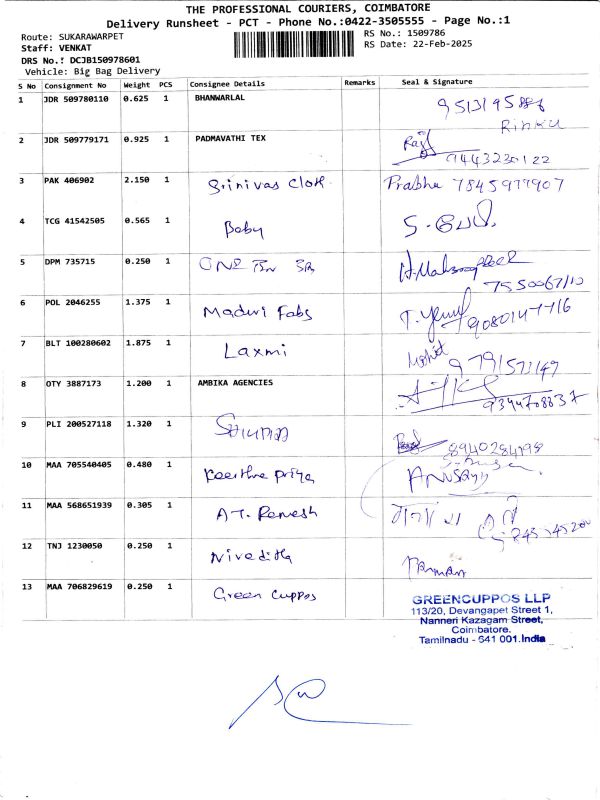 THE PROFESSIONAL COURIERS, COIMBATORE
Delivery Runsheet - PCT - Phone No.:0422-3505555 - Page No.:1
Route: SUKARAWARPET
RS No.: 1509786
Staff: VENKAT
RS Date: 22-Feb-2025
DRS No.: DCJB150978601
Vehicle: Big Bag Delivery
S No Consignment No Weight PCS Consignee Details Remarks Seal & Signature
1 JDR 509780110 0.625 1 BHANWARLAL
Rinku
2 JDR 509779171 0.925 1 PADMAVATHI TEX
9443230122
3 PAK 406902 2.150 1 Srinivas Cloth Prabhu 7845977907
4 TCG 41542505 0.565 1 Baby
5 DPM 735715 0.250 1 ONE
6 POL 2046255 1.375 1 Maduri Fabs
7 BLT 100280602 1.875 1 Laxmi Mohit
8 OTY 3887173 1.200 1 AMBIKA AGENCIES
9344708837
9 PLI 200527118 1.320 1
8940284198
10 MAA 705540405 0.480 1 Keerthe priya
11 MAA 568651939 0.305 1 A.T. Remesh
12 TNJ 1230050 0.250 1 Niveditha
13 MAA 706829619 0.250 1 Green Cuppos
GREENCUPPOS LLP
113/20, Devangapet Street 1,
Nanneri Kazagam Street,
Coimbatore.
Tamilnadu - 641 001.India